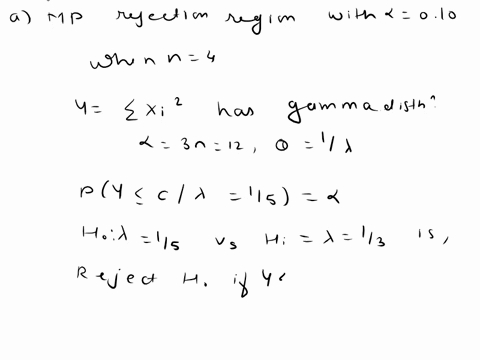 a) MP rejection region with α = 0.10
when n = 4
Y = Σ Xi² has gamma distn.
α = 3n = 12, θ = 1/λ
P(Y ≤ c / λ = 1/5) = α
H₀: λ = 1/5 vs Hi = λ = 1/3 is,
Reject H₀ if Y≤